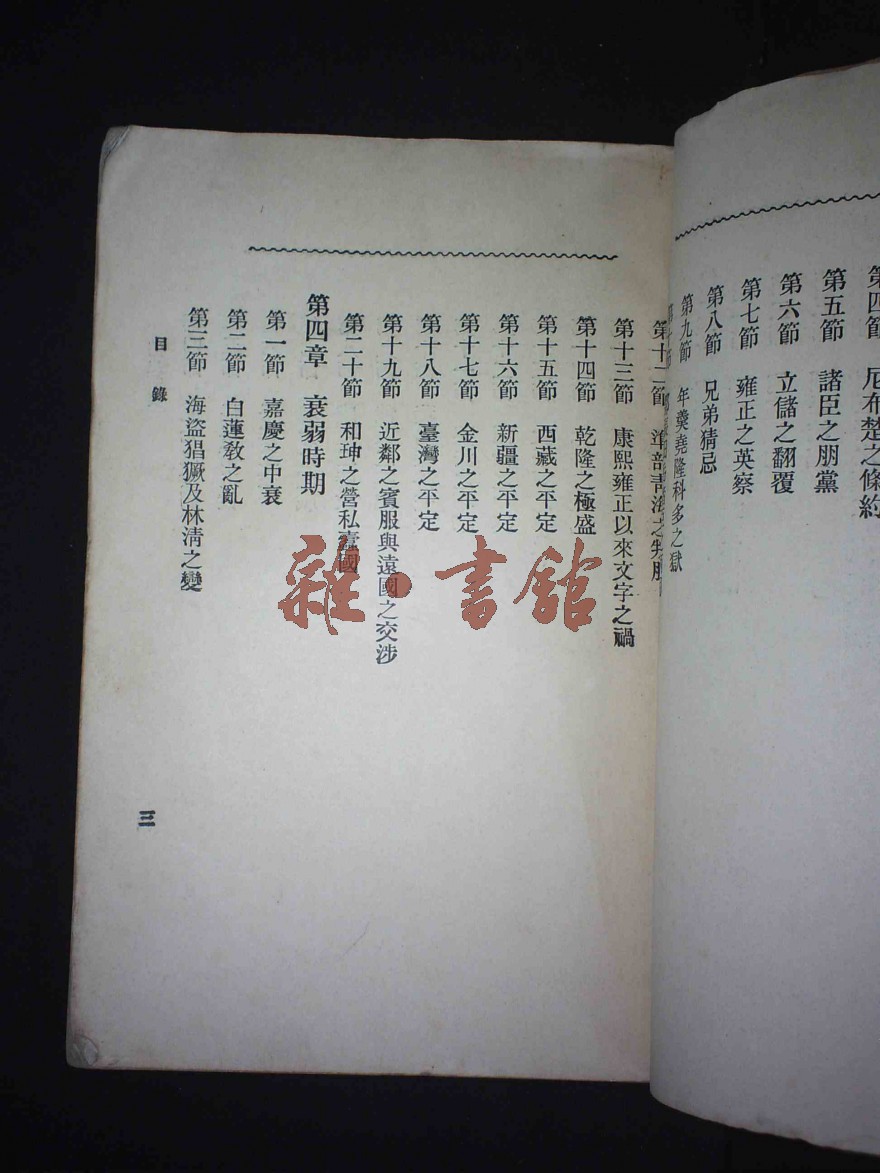 第四節　尼布楚之條約
第五節　諸臣之朋黨
第六節　立儲之翻覆
第七節　雍正之英察
第八節　兄弟猜忌
第九節　年羹堯隆科多之獄
第十二節　準部青海之
第十三節　康熙雍正以來文字之禍
第十四節　乾隆之極盛
第十五節　西藏之平定
第十六節　新疆之平定
第十七節　金川之平定
第十八節　臺灣之平定
第十九節　近鄰之賓服與遠國之交涉
第二十節　和珅之營私蠹國
第四章　衰弱時期
第一節　嘉慶之中衰
第二節　白蓮敎之亂
第三節　海盜猖獗及林清之變
目錄
三
雜·書館